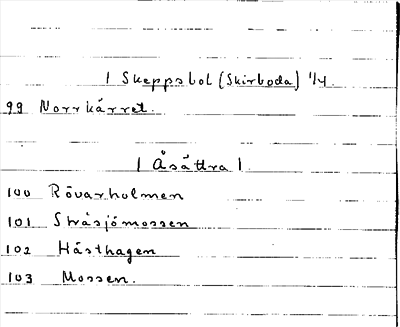 | Skeppsbol (Skirboda) 1/4.
99 Norrkärret.
| Åsättra |.
100 Rövarholmen
101 Stråsjömossen
102 Hästhagen
103 Mossen.